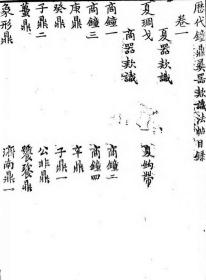 歷代鐘鼎彝器款識法帖目錄
卷一
夏器款識
商器款識
夏琱戈 夏鉤帶
商鐘一 商鐘二
商鐘三 商鐘四
庚鼎 辛鼎
癸鼎 子鼎一
子鼎二 公非鼎
䕭鼎 饕餮鼎
象形鼎 濟南鼎一